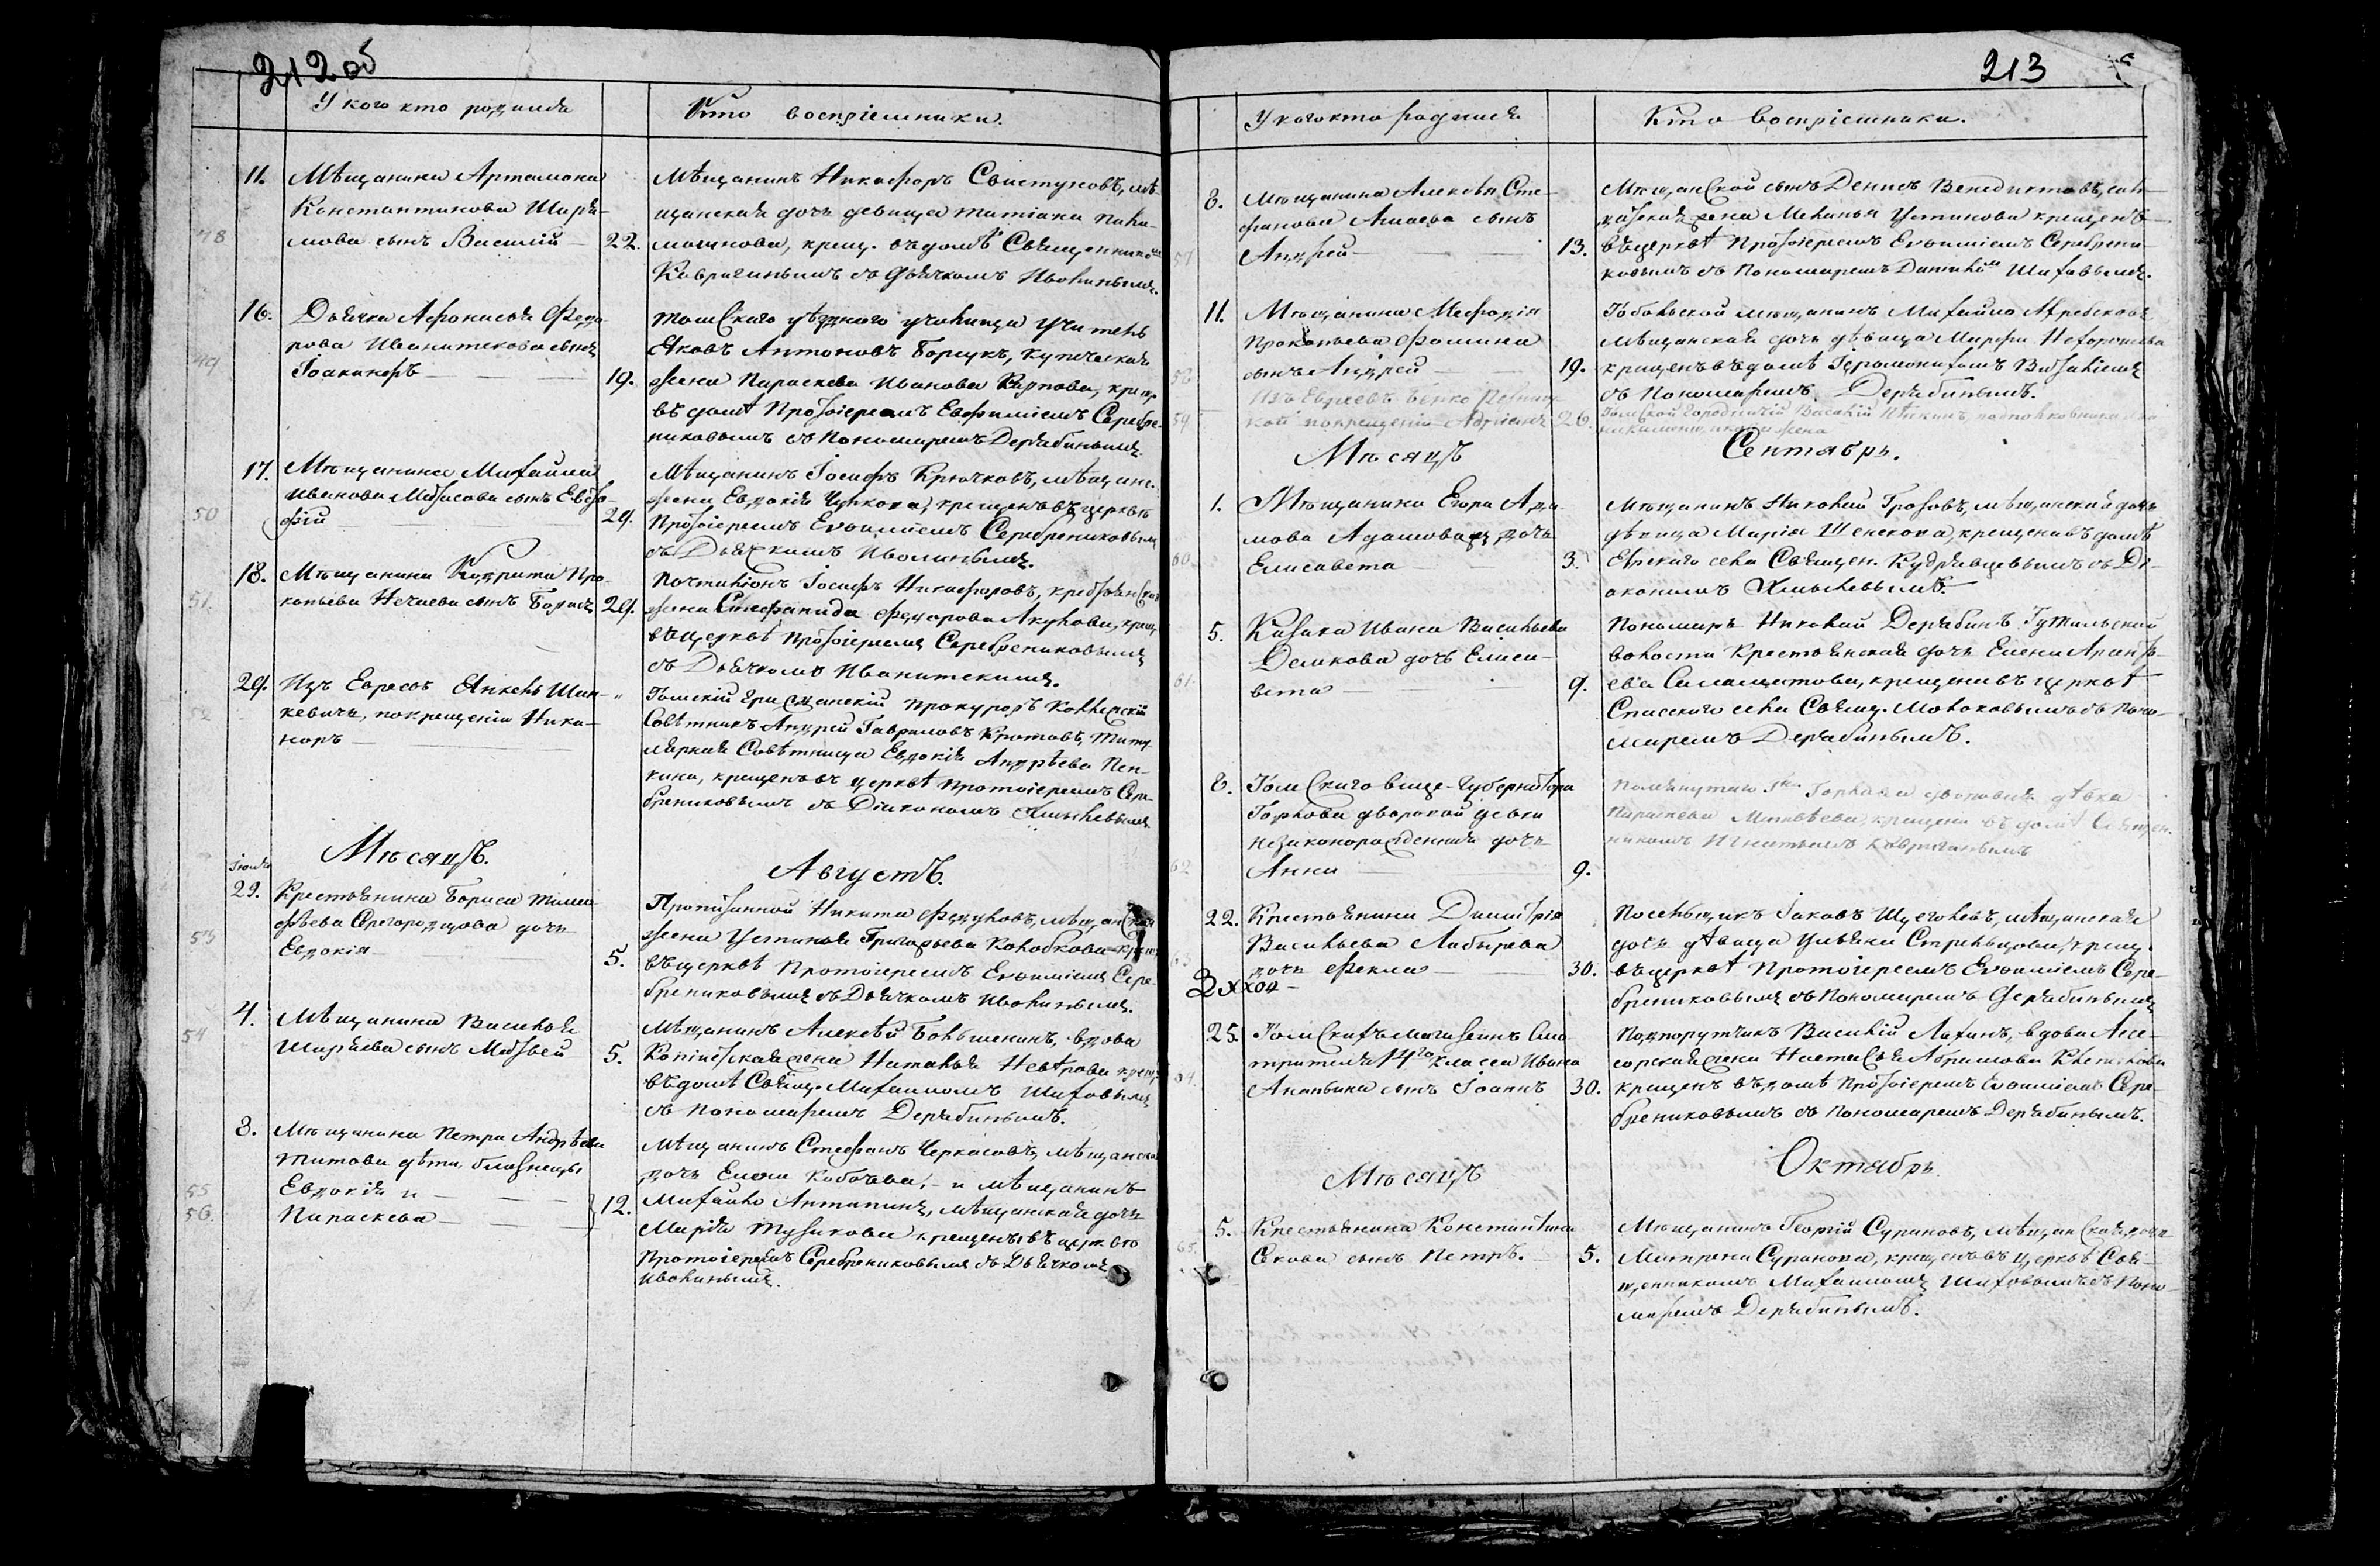 212 об
У кого кто родился
Кто воспріемники.
48
11. Мѣщанина Артамона
Константинова Ширя-
мова сынъ Василій 22.
Мѣщанинъ Никифоръ Свистуновъ, мѣ-
щанская дочь девица Татіана
крещ. въ домѣ Священникомъ
Ковригинымъ съ Дьячкомъ Иволинымъ.
49
16. Дьячка Афанасья Федо-
рова Иванитскова сынъ
Іоакинфъ 19.
Томскаго уѣзднаго училища Учитель
Яковъ Антоновъ Борщукъ, Купеческая
жена Параскева Иванова Карпова, крещ.
въ домѣ Протоіереомъ Евфиміемъ Серебре-
никовымъ съ Пономаремъ Дерябинымъ.
50
17. Мѣщанина Михайлы
Иванова сынъ
29.
Мѣщанинъ Іосифъ Крючковъ, мѣщанс.
жена Евдокія крещенъ въ церквѣ
Протоіереемъ Евѳиміемъ Серебрениковым
съ Дьячкомъ Иволинымъ.
51.
18. Мѣщанина Кондрата Про-
копьева Нечаева сынъ Борисъ 29.
Почталіонъ Іосифъ Никифоровъ,
жена Стефанида Федорова Акулова, крещ.
въ церквѣ Протоіереемъ Серебрениковымъ
съ Дьячкомъ Иванитскимъ.
52
29. Изъ Евреевъ Янкель Шин-
кевичъ, по крещеніи Ника-
норъ
Томскій Гражданскій Прокуроръ Коллежскій
Совѣтникъ Андрей Гавриловъ Кротовъ, Титу-
лярная Совѣтница Евдокія Андрѣева Пен-
кина, крещенъ въ церквѣ Протоіереемъ Сере-
брениковымъ съ Діакономъ Хмылевымъ.
Мѣсяцъ.
Августъ.
53
Іюля
29. Крестьянина Бориса Тимо-
фѣева Серегородцова дочь
Евдокія 5.
Прописанной Никита Федуловъ, мѣщанская
жена Устинья Григорьева Колобкова крещ.
въ церквѣ Протоіереемъ Евѳиміемъ Сере-
брениковымъ съ Дьячкомъ Иволинымъ.
54
4. Мѣщанина Василья
Ширяева сынъ Матвей 5.
Мѣщанинъ Алексѣй Большенинъ, вдова
Копіистская жена Наталья крещ.
въ домѣ Свящ. Михаиломъ Шиховымъ
съ Пономаремъ Дерябинымъ.
55
56.
8. Мѣщанина Петра Андрѣева
Титова дѣти близнецы,
Евдокія и
Параскева 12.
Мѣщанинъ Стефанъ Черкасовъ, мѣщанска
дочь Елена и мѣщанинъ
Михайло Антипинъ, мѣщанская дочь
Марія крещены въ церквѣ
Протоіереемъ Серебрениковымъ съ Дьячкомъ
Иволинымъ.
213
У кого кто родился
Кто воспріемники.
57
8. Мѣщанина Алексѣя Сте-
фанова сынъ
Андрей 13.
Мѣщанской сынъ Денисъ Венедиктовъ,
жена Меланья Устинова крещенъ
въ церквѣ Протоіереемъ Евѳиміемъ Серебрени-
ковымъ съ Пономаремъ Шиховымъ.
58
11. Мѣщанина Мефодія
Прокопьева Фомина
сынъ Андрей 19.
Тобольской мѣщанинъ Михайло
мѣщанская дочь дѣвица Марфа Нехорошева
крещенъ въ домѣ Іеромонахомъ
съ Пономаремъ Дерябинымъ.
59
Изъ Евреевъ
по крещеніи 26.
Томской Городничій Василій
жена
Мѣсяцъ
Сентябрь.
60.
1. Мѣщанина Егора Ада-
мова Адамова дочь
Елисавета 3.
Мѣщанинъ Николай мѣщанская дочь
дѣвица Марія крещена въ домѣ
села Священ. Кудрявцевымъ съ Ді-
акономъ Хмылевымъ.
61.
5. Казака Ивана Васильева
Демкова дочь Елиса-
вета 9.
Пономарь Николай Дерябинъ
волости Крестьянская дочь Елена
крещена въ церквѣ
Спасскаго села Свящ. Молоковымъ съ Поно-
маремъ Дерябинымъ.
62
8. Томскаго Вице-Губернатора
Горлова дворовой девки
незаконорожденная дочь
Анна 9.
Помянутаго Г-на Горлова дворовая дѣвка
Параскева Матвѣева, крещена въ домѣ Священ-
никомъ Игнатіемъ Ковригинымъ
63
22. Крестьянина Димитрія
Васильева Лабырева
дочь Фекла 30.
Посельщикъ Іаковъ Щеголевъ, мѣщанская
дочь дѣвица Ульяна Стрельцова, крещ.
въ церквѣ Протоіереемъ Евѳиміемъ Сере-
брениковымъ съ Пономаремъ Дерябинымъ
64.
25. Томскихъ Магазеинъ Смо-
трителя 14го класса Ивана
Ананьина сынъ Іоаннъ 30.
Подпорутчикъ Василій Лахинъ, вдова Асе-
сорская жена Настасья Абрамова
крещенъ въ домѣ Протоіереемъ Евѳиміемъ Сере-
брениковымъ съ Пономаремъ Дерябинымъ.
Мѣсяцъ
Октябрь
65.
5. Крестьянина Константина
Скова сынъ Петръ. 5.
Мѣщанинъ Георгій Сурановъ, мѣщанская дочь
Матрена Суранова, крещенъ въ церквѣ Свя-
щенникомъ Михаиломъ Шиховымъ съ Поно-
маремъ Дерябинымъ.